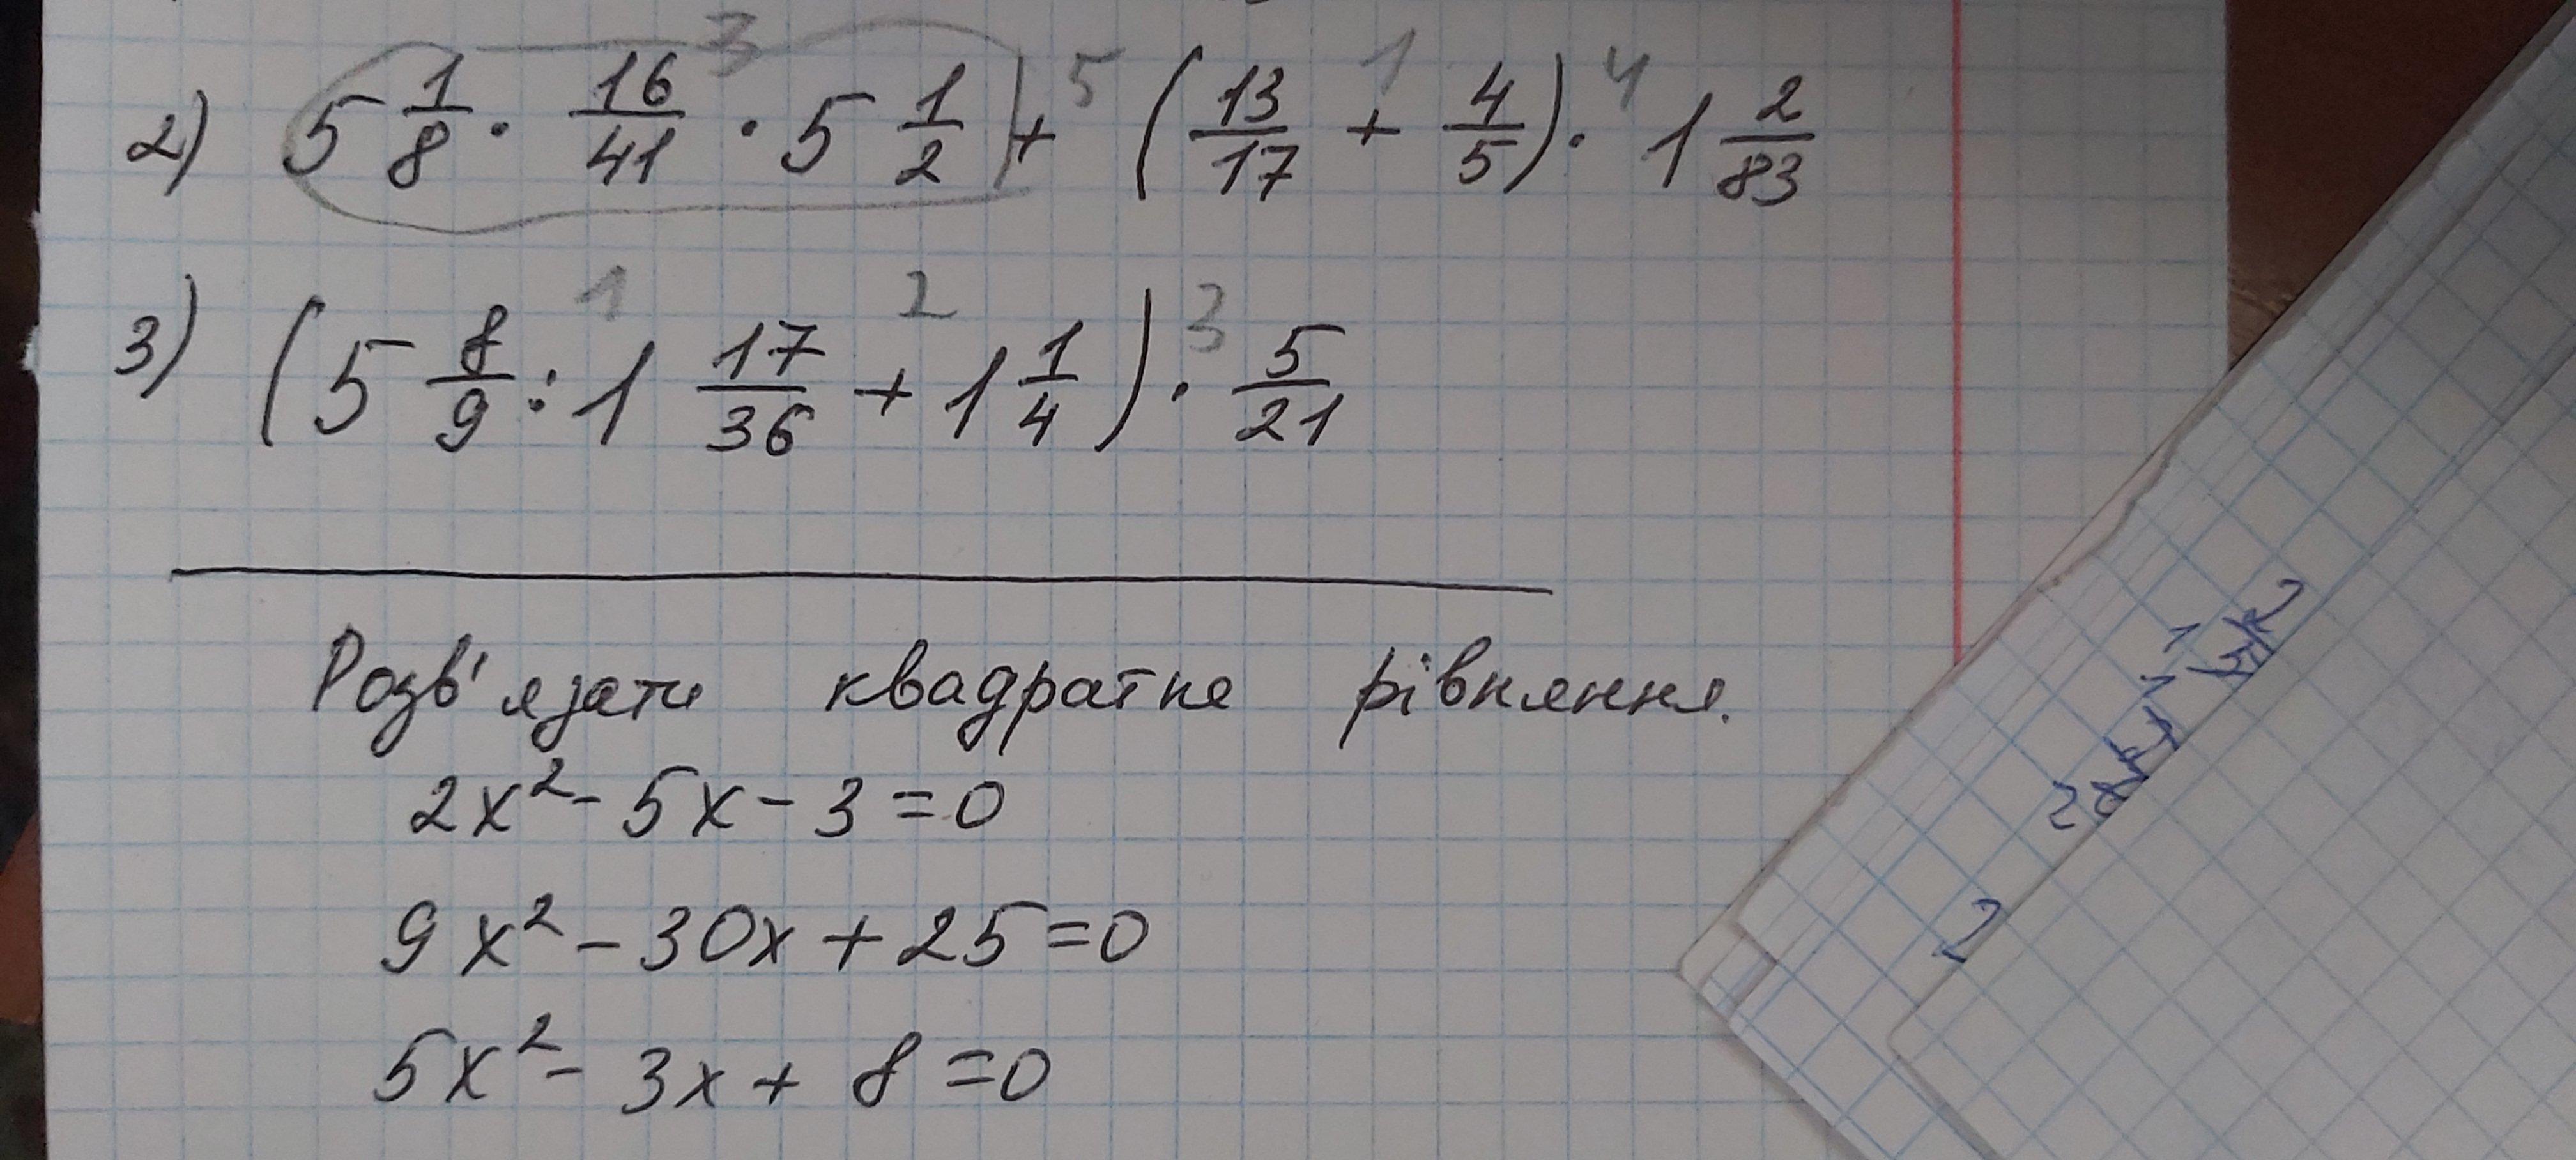 2) 5 1/8 · 16/41 · 5 1/2 + (13/17 + 4/5) · 1 2/83
3 5 1 4
3) (5 8/9 : 1 17/36 + 1 1/4) · 5/21
1 2 3
Розв'язати квадратне рівняння.
2x² - 5x - 3 = 0
9x² - 30x + 25 = 0
5x² - 3x + 8 = 0
2